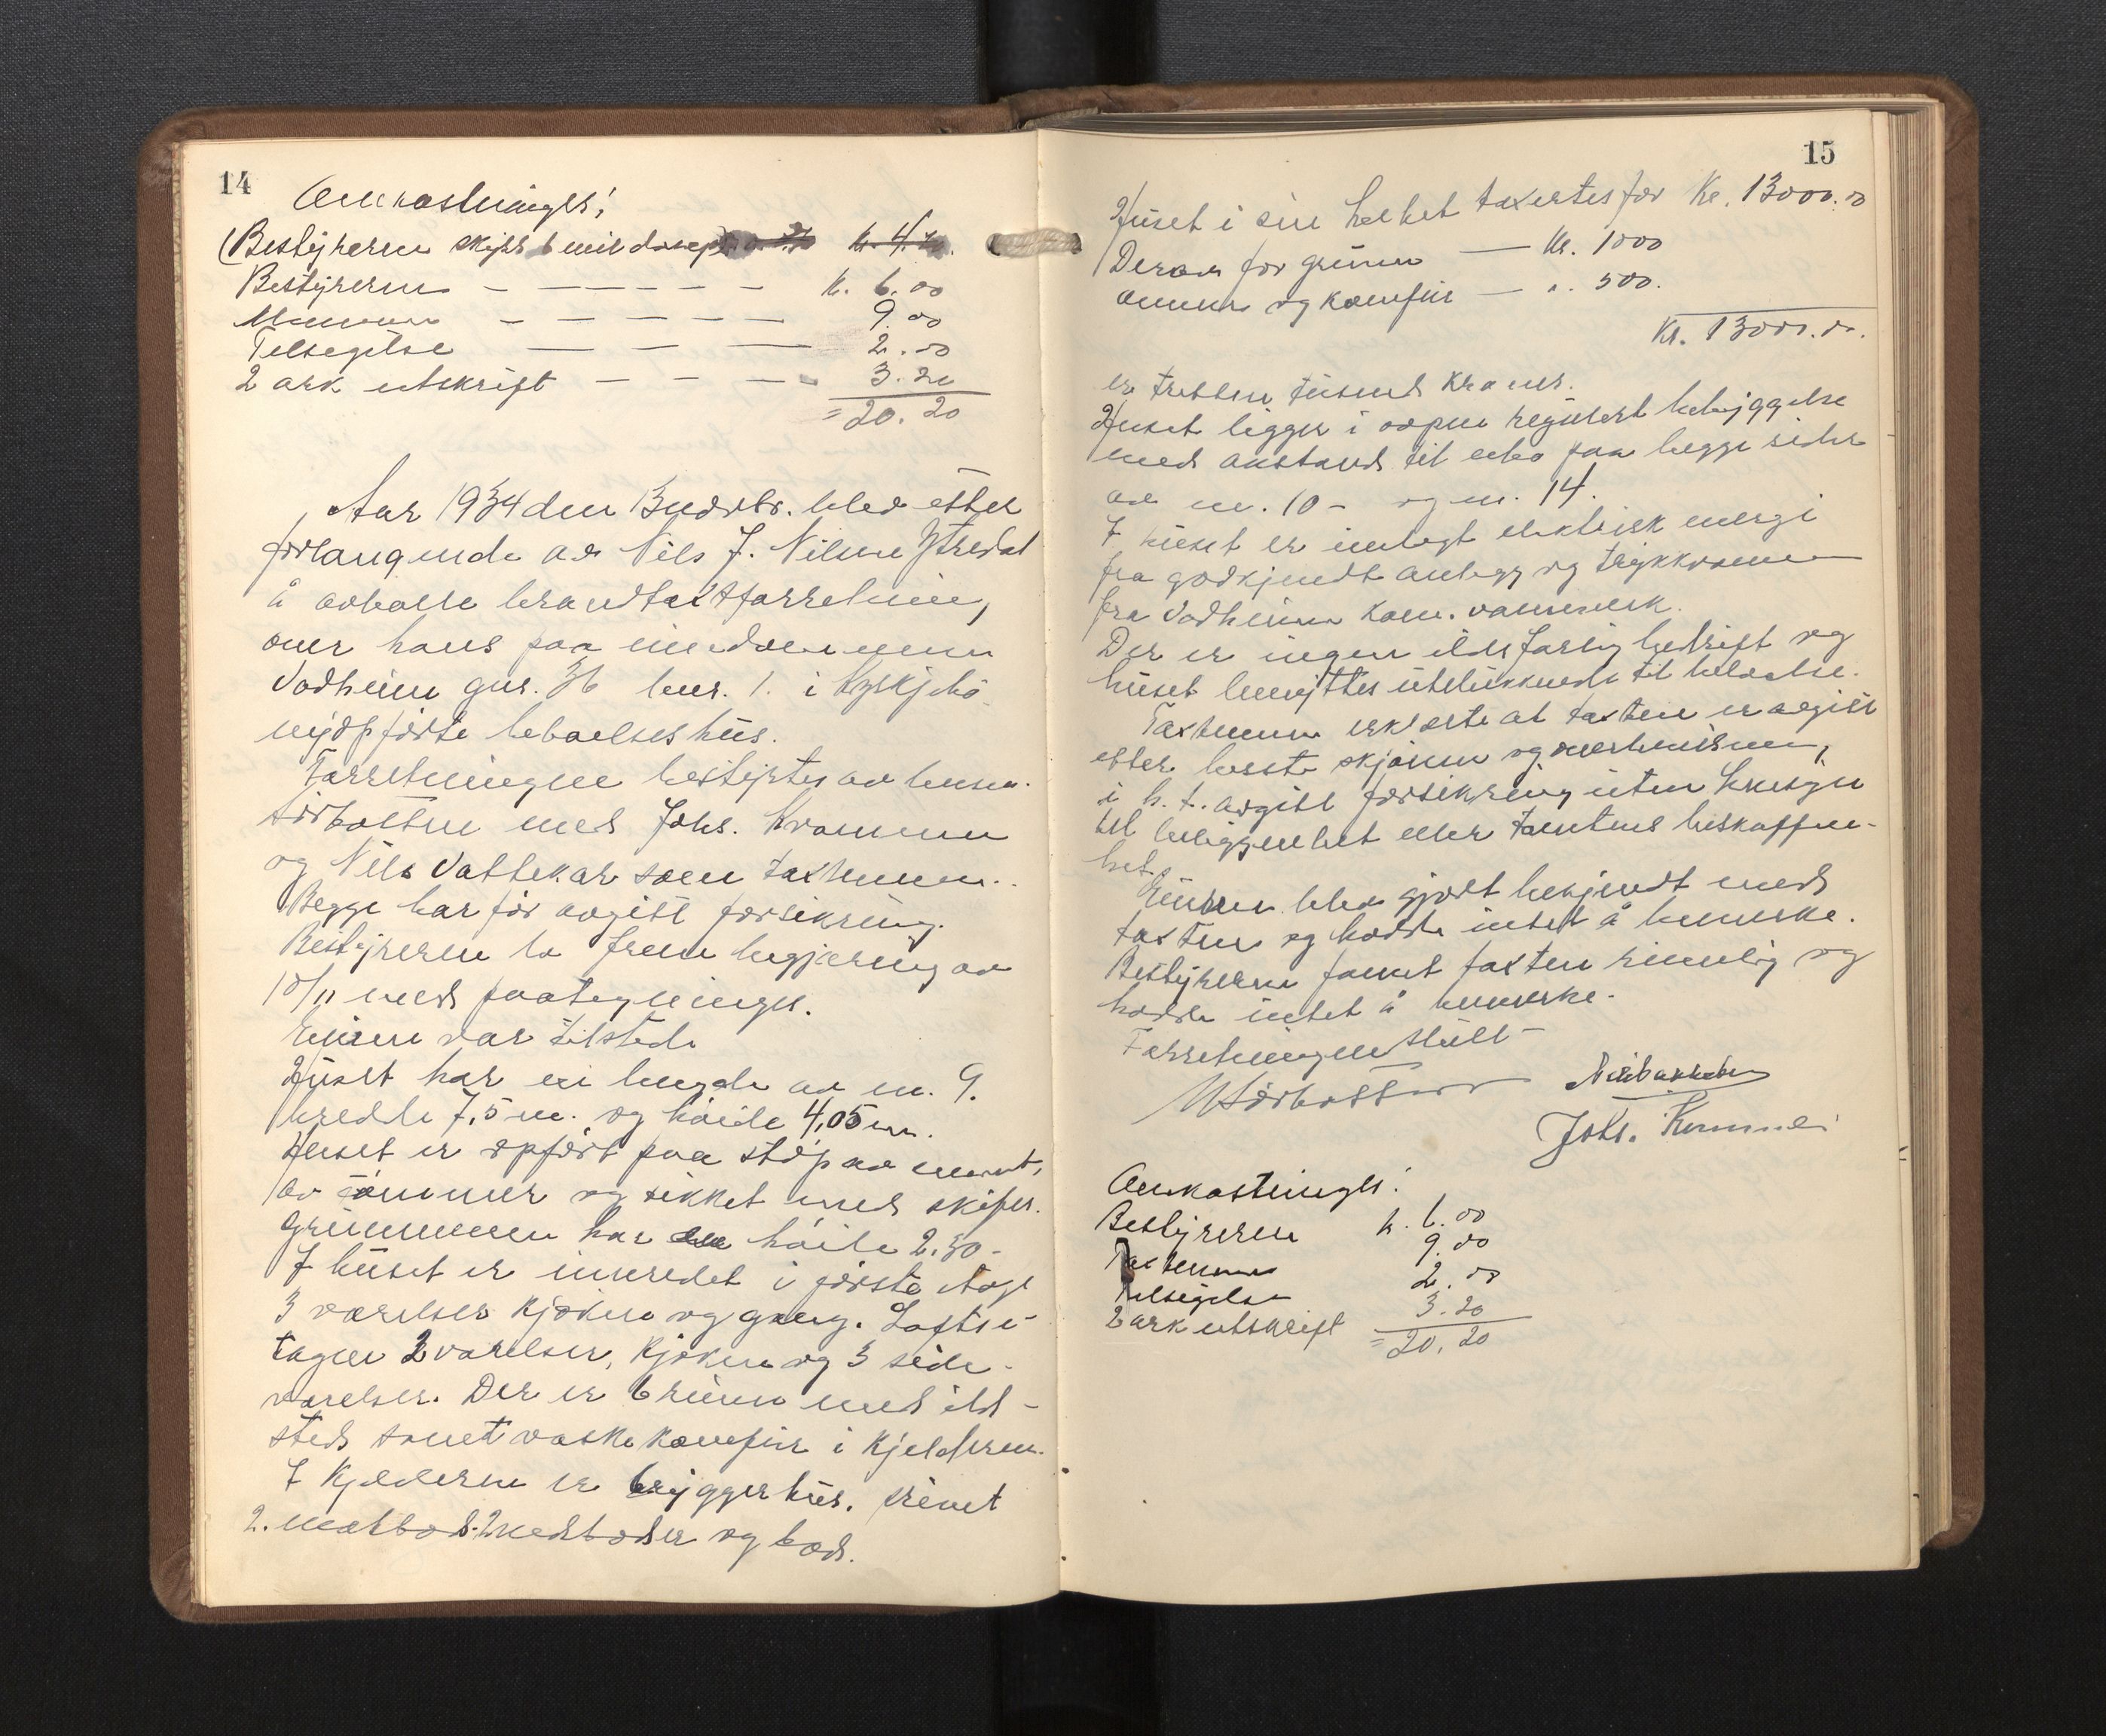 14
Omkostninger:
(Bestyreren skyss 6 mil k. 4.
Bestyreren - - - - - - k. 6.00
- - - - - 9.00
Tilsigelse - - - 2.00
2 ark utskrift - - - - 3.20
= 20.20
Aar 1934 den 13 novbr. blev etter
forlangende av Nils J. Nilsen Ytredal
å avholde brandtakstforretning
over hans paa eiendommen
Vadheim gnr. 36 bnr. 1. i Kyrkjebø
nyopførte beboelseshus.
Forretningen bestyrtes av lensm.
Sørbotten med Johs. Kvammen
og Nils Vattekar som takstmenn.
Begge har før avgitt forsikring.
Bestyreren la frem begjæring av
10/11 med paategninger.
Eieren var tilstede
Huset har en lengde av m. 9.
bredde 7,5 m. og høide 4,05 m.
Huset er opført paa støp av sement,
av tømmer og tekket med skifer.
Grunnmuren har en høide 2.30 -
I huset er innredet i første etage
3 værelser kjøken og gang. Loftse-
tagen 2 værelser, kjøken og 3 side-
værelser. Der er 6 rum med ild-
sted samt vaskekomfur i kjelderen.
I kjelderen er bryggerhus, samt
2. matbod. 2 vedboder og bod.
15
Huset i sin helhet taxertes for Kr. 13000.00
Derav for grunnen — Kr. 1000
Ovnner og komfur — ". 500.
Kr. 13000.00.
er tretten tusend kroner.
Huset ligger i open regulert bebyggelse
med avstand til nabo paa begge sider
av m. 10 - og m. 14.
I huset er innlagt elektrisk energi
fra godkjendt anlegg og trykkvann
fra Vadheim kom. vannverk.
Der er ingen ildsfarlig bedrift og
huset benyttes utelukkende til beboelse.
Takstmenn erklærte at taksten er avgitt
etter beste skjønn og overbevisning,
i h. t. avgitt forsikring uten hensyn
til beliggenhet eller tomtens beskaffen-
het.
Eieren blev gjort bekjendt med
taksten og hadde intet å bemerke.
Bestyreren fannt taxten rimelig og
hadde intet å bemerke.
Forretningen slutt
Sørbotten
Johs. Kvammen
Omkostninger:
Bestyreren k. 6.00
Takstmenn 9.00
Tilsigelse 2.00
2 ark utskrift 3.20
= 20.20